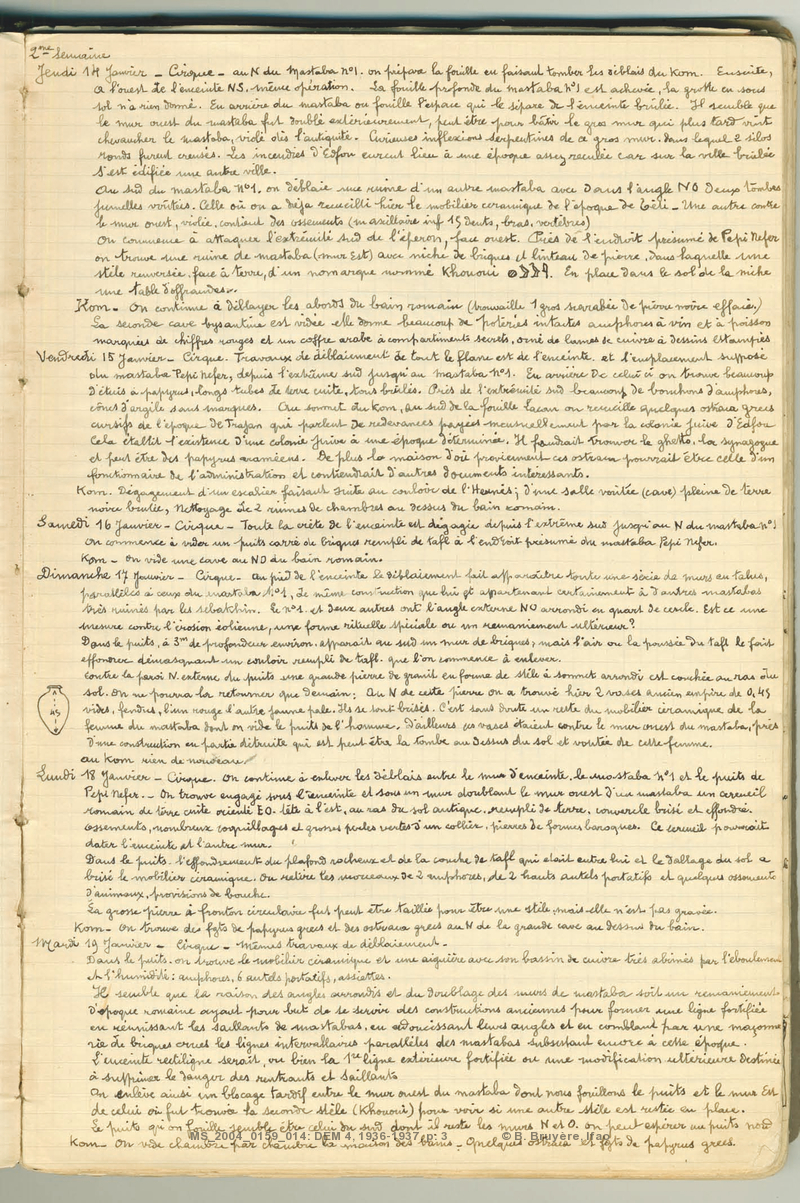 2me semaine
Jeudi 14 Janvier - Cirque - au N du Mastaba n°1. on prépare la fouille en faisant tomber les déblais du Kom. Ensuite,
à l'ouest de l'enceinte NS, même opération. La fouille profonde du mastaba n°1 est achevée, la grotte en sous
sol n'a rien donné. En arrière du mastaba on fouille l'espace qui le sépare de l'enceinte brûlée. Il semble que
le mur ouest du mastaba fut doublé extérieurement, peut être pour bâtir le gros mur qui plus tard vint
chevaucher le mastaba, violé dès l'antiquité. Curieuses inflexions serpentines de ce gros mur. dans lequel 2 silos
ronds furent creusés. Les incendies d'Edfou eurent lieu à une époque assez reculée car sur la ville brûlée
s'est édifiée une autre ville.
Au sud du mastaba n°1. on déblaie une ruine d'un autre mastaba avec dans l'angle NO deux tombes
jumelles voûtées. Celle où on a déjà recueilli hier le mobilier céramique de l'époque de Téti - Une autre contre
le mur ouest, violée, contient des ossements (maxillaire inf 15 dents, bras, vertèbres)
On commence à attaquer l'extrémité sud de l'éperon, face ouest. Près de l'endroit présumé de Pepi Nefer
on trouve une ruine de mastaba (mur Est) avec niche de briques et linteau de pierre, dans laquelle une
stèle renversée, face à terre, d'un nomarque nommé Khououi. En place dans le sol de la niche
une table d'offrandes.
Kom - On continue à déblayer les abords du bain romain (trouvaille 1 gros scarabée de pierre noire effacée)
La seconde cave byzantine est vidée elle donne beaucoup de poteries intactes amphores à vin et à poisson
marquées de chiffres rouges et un coffre arabe à compartiments secrets, orné de lames de cuivre à dessins estampés
Vendredi 15 Janvier - Cirque. Travaux de déblaiement de tout le flanc est de l'enceinte et l'emplacement supposé
du mastaba Pepi Nefer, depuis l'extrême sud jusqu'au mastaba n°1. En arrière de celui ci on trouve beaucoup
d'étuis à papyrus, longs tubes de terre cuite, tous brûlés. Près de l'extrémité sud beaucoup de bouchons d'amphores,
cônes d'argile sans marques. Au sommet du Kom, au sud de la fouille Lacau on recueille quelques ostraca grecs
cursifs de l'époque de Trajan qui parlent de redevances payées mensuellement par la colonie juive d'Edfou
Cela établit l'existence d'une colonie juive à une époque déterminée. Il faudrait trouver le ghetto, la synagogue
et peut être des papyrus araméens. De plus la maison d'où proviennent ces ostraca pourrait être celle d'un
fonctionnaire de l'administration et contiendrait d'autres documents intéressants.
Kom. Dégagement d'un escalier faisant suite au couloir de l'Hermès; d'une salle voûtée (cave) pleine de terre
noire brulée, Nettoyage de 2 ruines de chambres au dessus du bain romain.
Samedi 16 Janvier - Cirque - Toute la crête de l'enceinte est dégagée depuis l'extrême sud jusqu'au N du mastaba n°1
On commence à vider un puits carré de briques rempli de tafl à l'endroit présumé du mastaba Pepi Nefer.
Kom - On vide une cave au NO du bain romain.
Dimanche 17 Janvier - Cirque - au pied de l'enceinte le déblaiement fait apparaître toute une série de murs en talus,
parallèles à ceux du mastaba n°1, de même construction que lui et appartenant certainement à d'autres mastabas
très ruinés par les sebakhin. Le n°1. et deux autres ont l'angle externe NO arrondi en quart de cercle. Est ce une
mesure contre l'érosion éolienne, une forme rituelle spéciale ou un remaniement ultérieur?
Dans le puits, à 3m de profondeur environ, apparait au sud un mur de briques, mais l'air ou la poussée du tafl le fait
effondrer démasquant un couloir rempli de tafl. que l'on commence à enlever.
Contre la paroi N. externe du puits une grande pierre de granit en forme de stèle à sommet arrondi est couchée au ras du
sol. On ne pourra la retourner que demain. Au N de cette pierre on a trouvé hier 2 vases ancien empire de 0,45
vides, fendus, l'un rouge l'autre jaune pale. Ils se sont brisés. C'est sans doute un reste du mobilier céramique de la
femme du mastaba dont on vide le puits de l'homme. D'ailleurs ces vases étaient contre le mur ouest du mastaba, près
d'une construction en partie détruite qui est peut être la tombe au dessus du sol et voûtée de cette femme.
45
au Kom rien de nouveau
Lundi 18 Janvier - Cirque. On continue à enlever les déblais entre le mur d'enceinte, le mastaba n°1 et le puits de
Pepi Nefer. - On trouve engagé sous l'enceinte et sous un mur doublant le mur ouest d'un mastaba un cercueil
romain de terre cuite orienté EO. tête à l'est, au ras du sol antique, rempli de terre, couvercle brisé et effondré.
ossements, nombreux coquillages et grosses perles vertes d'un collier, pierres de formes baroques. Ce cercueil pourrait
dater l'enceinte et l'autre mur.
Dans le puits l'effondrement du plafond rocheux et de la couche de tafl qui était entre lui et le dallage du sol a
brisé le mobilier céramique. On retire les morceaux de 2 amphores, de 2 hauts autels portatifs et quelques ossements
d'animaux, provisions de bouche.
La grosse pierre à fronton circulaire fut peut être taillée pour être une stèle, mais elle n'est pas gravée.
Kom - On trouve des fgts de papyrus grecs et des ostraca grecs au N de la grande cave au dessus du bain.
Mardi 19 Janvier - Cirque - Mêmes travaux de déblaiement -
Dans le puits. on trouve le mobilier céramique et une aiguière avec son bassin de cuivre très abimés par l'éboulement
et l'humidité: amphores, 6 autels portatifs, assiettes.
Il semble que la raison des angles arrondis et du doublage des murs de mastaba soit un remaniement
d'époque romaine ayant pour but de se servir des constructions anciennes pour former une ligne fortifiée
en réunissant les saillants de mastabas, en adoucissant leurs angles et en comblant par une maçonne
rie de briques crues les lignes intervallaires parallèles des mastabas subsistant encore à cette époque.
L'enceinte rectiligne serait, ou bien la 1re ligne extérieure fortifiée ou une modification ultérieure destinée
à supprimer le danger des rentrants et saillants
On enlève ainsi un blocage tardif entre le mur ouest du mastaba dont nous fouillons le puits et le mur Est
de celui où fut trouvée la seconde stèle (Khououi) pour voir si une autre stèle est restée en place.
Le puits qu'on fouille semble être celui du sud dont il reste les murs N et O. on peut espérer un puits nord
Kom - On vide chambre par chambre la maison des bains - Quelques ostraca et fgts de papyrus grecs.
MS_2004_0159_014: DEM 4, 1936-1937, p: 3 © B. Bruyère, Ifao